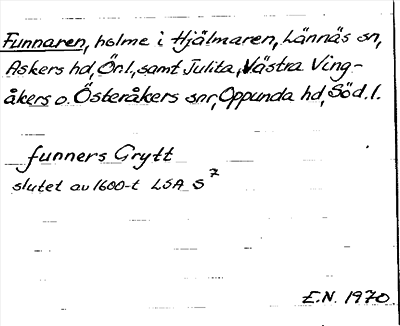 Funnaren, holme i Hjälmaren, Lännäs sn,
Askers hd, Ör.l., samt Julita, Västra Ving-
åkers o. Österåkers snr, Oppunda hd, Söd.l.
funners Grytt
slutet av 1600-t LSA S 7
E.N. 1970